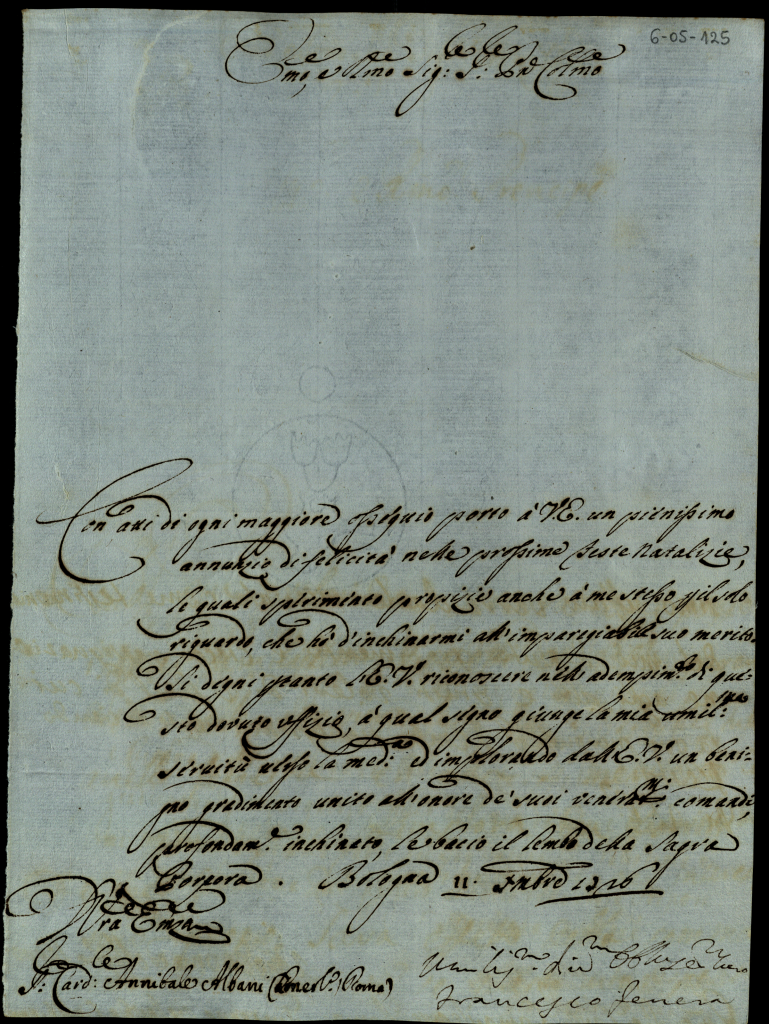 6-05-125
Emo, e Rmo Sig: P: Pñ Colmo
Con atti di ogni maggiore ossequio porto à V.E. un pienissimo
annunzio di felicità nelle prossime feste Natalizie,
le quali sperimento propizie anche à me stesso p il solo
riguardo, che hò d'inchinarmi all'imparegiabil suo merito.
Si degni ptanto l'E.V. riconoscere nell'adempim.to di que-
sto dovuto offizio, à qual segno giunge la mia umil.ma
servitù verso la med.ma ed implorando dall'E.V. un beni-
gno gradimento unito all'onore de' suoi venerat.mi comandi,
profondam.e inchinato, le bacio il lembo della Sagra
Porpora. Bologna 11. Xmbre 1726
Di Vra Emza
S: Card: Annibale Albani Camerl.o (Roma)
Umilis.mo di.mo Obblig.mo
Francesco